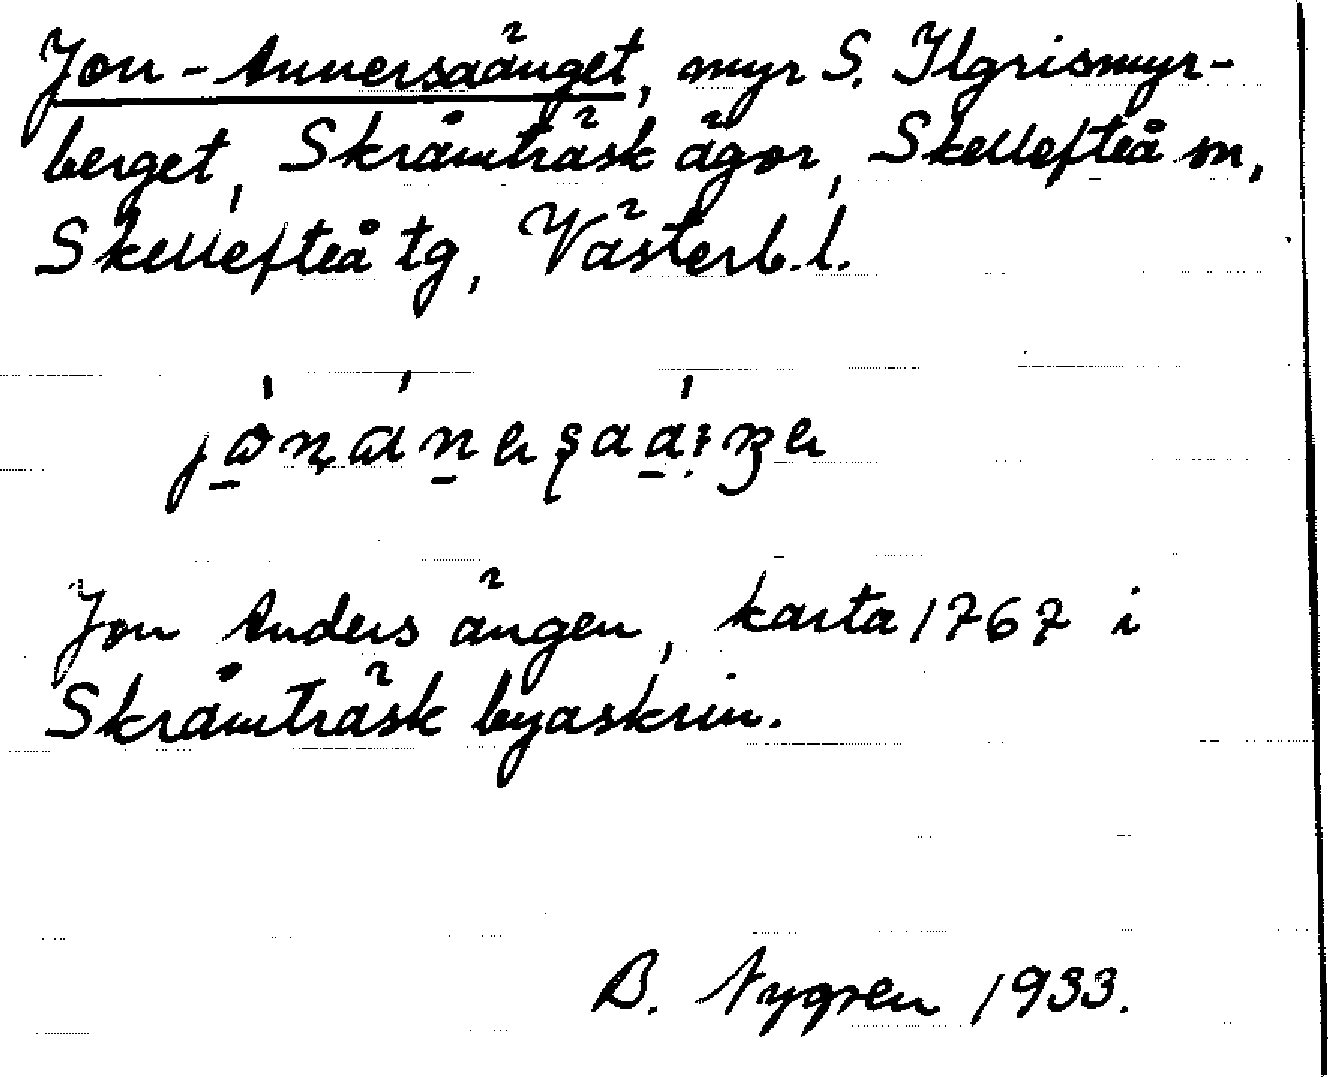 Jon-Annersaänget, myr S. Ilgrismyr-
berget, Skråmträsk ägor, Skellefteå sn,
Skellefteå tg, Västerb. l.
Jon Anders ängen, karta 1767 i
Skråmträsk byaskrin.
B. Nygren 1933.